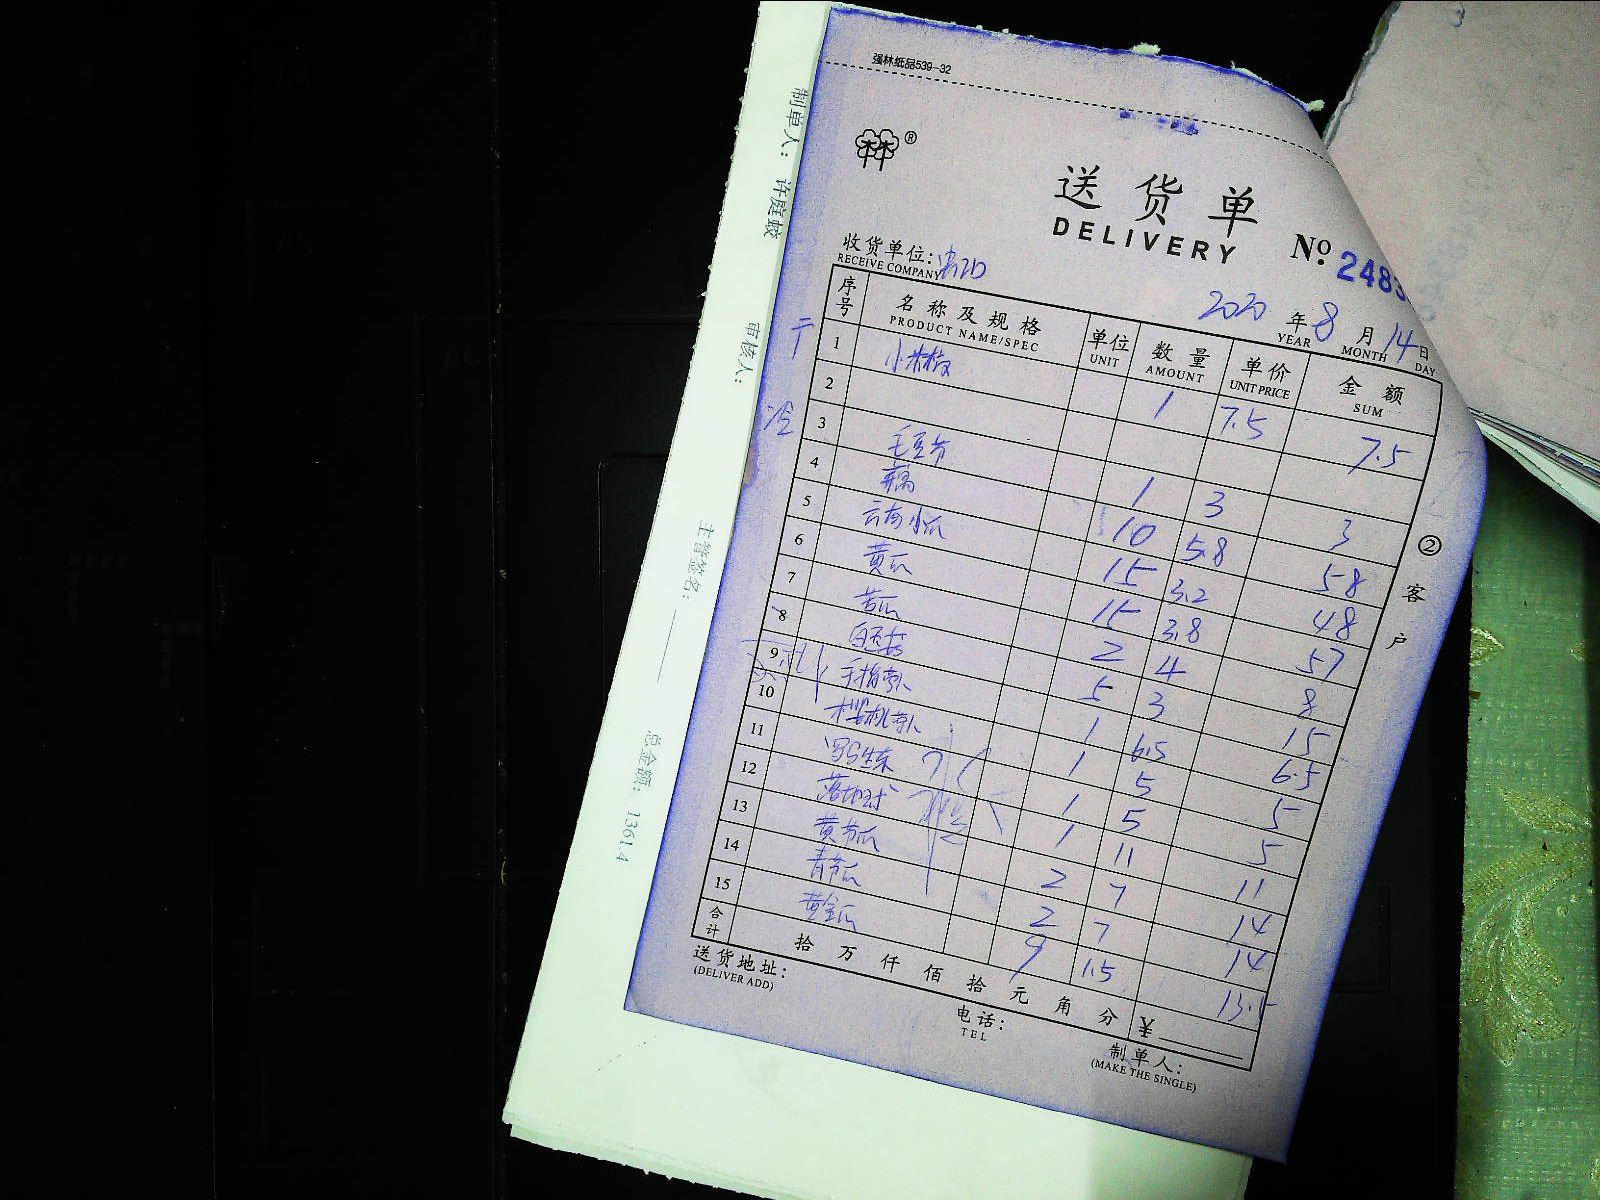 强林纸品539-32
®
送货单
DELIVERY
No. 248
收货单位:
RECEIVE COMPANY
2020 年 8 月 14 日
YEAR MONTH DAY
序号 名称及规格 单位 数量 单价 金额
PRODUCT NAME/SPEC UNIT AMOUNT UNIT PRICE SUM
干
1 小米椒 1 7.5 7.5
2
冷
3 毛豆节 1 3 3
4 藕 10 5.8 58
5 云南小瓜 15 3.2 48
6 黄瓜 15 3.8 57
7 苦瓜 2 4 8
8 白玉菇 5 3 15
9 手指萝卜 1 6.5 6.5
10 樱桃萝卜 1 5 5
11 1 5 5
12 落地球 1 11 11
13 黄节瓜 2 7 14
14 青节瓜 2 7 14
15 黄金瓜 9 1.5 13.5
合计 拾 万 仟 佰 拾 元 角 分 ¥
送货地址:
(DELIVER ADD)
电话:
TEL
制单人:
(MAKE THE SINGLE)
②客户
制单人: 许庭蛟
审核人:
主管签名:
总金额: 1361.4